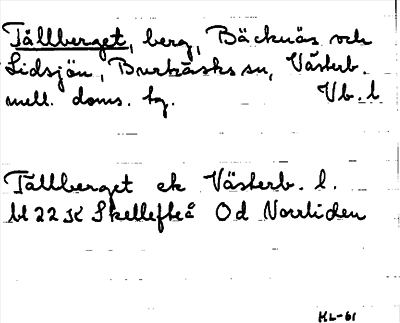 Tällberget, berg, Bäcknäs och
Lidsjön, Burträsks sn, Västerb.
mell. doms. hg. Vb. l
Tällberget ek Västerb. l.
bl 22 K Skellefteå Od Norrliden
KL-61